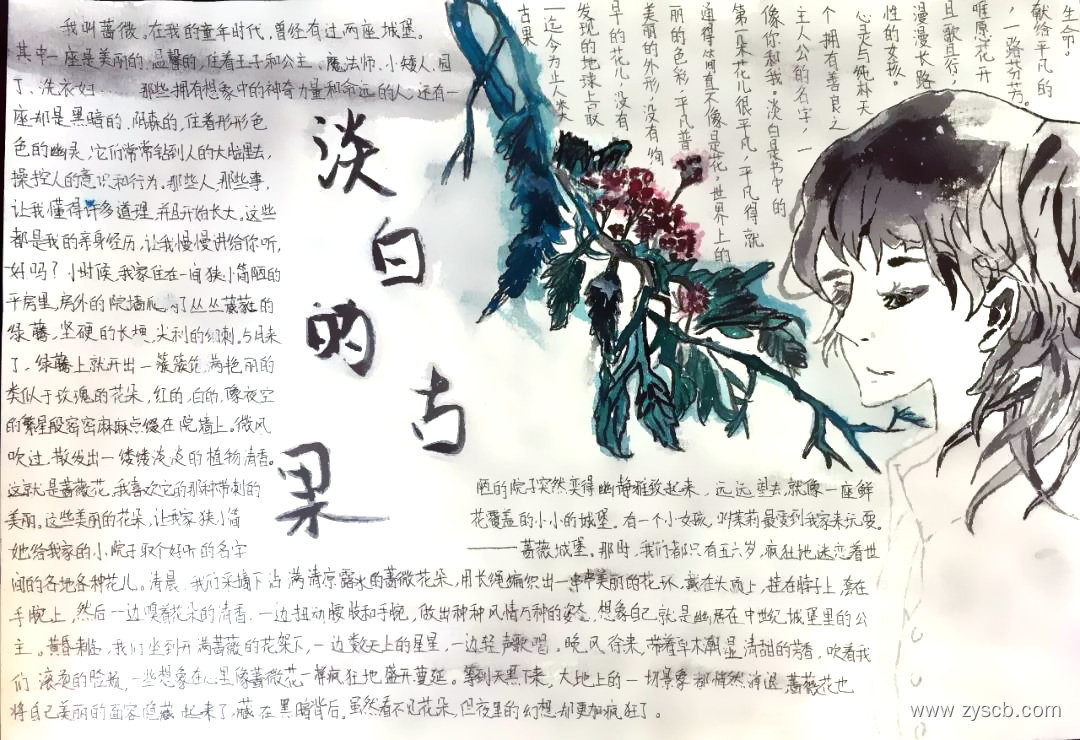 我叫蔷薇，在我的童年时代，曾经有过两座城堡。
其中一座是美丽的、温馨的，住着王子和公主、魔法师、小矮人、园
丁、洗衣妇……那些拥有想象中的神奇力量和命运的人；还有一
座却是黑暗的、阴森的，住着形形色
色的幽灵，它们常常钻到人的大脑里去，
操控人的意识和行为。那些人，那些事，
让我懂得许多道理，并且开始长大，这些
都是我的亲身经历，让我慢慢讲给你听，
好吗？小时候，我家住在一间狭小简陋的
平房里，房外的院墙爬了丛丛蔷薇的
绿藤，坚硬的长埂，尖利的幼刺。5月来
了，绿藤上就开出一簇簇饱满艳丽的
类似于玫瑰的花朵，红的，白的，像夜空
的繁星般密密麻麻点缀在院墙上。微风
吹过，散发出一缕缕淡淡的植物清香。
这就是蔷薇花，我喜欢它的那种带刺的
美丽。这些美丽的花朵，让我家狭小简
陋的院子突然变得幽静雅致起来，远远望去，就像一座鲜
花覆盖的小小的城堡。有一个小女孩，叫茉莉最爱到我家来玩耍。
她给我家的小院子取个好听的名字
——蔷薇城堡。那时，我们都只有五六岁，疯狂地迷恋着世
间的各地各种花儿。清晨，我们采摘下沾满清凉露水的蔷薇花朵，用长绳编织出一串串美丽的花环，戴在头顶上，挂在脖子上，绕在
手腕上，然后一边嗅着花朵的清香，一边扭动腰肢和手腕，做出种种风情万种的姿态，想象自己就是幽居在中世纪城堡里的公
主。黄昏来临，我们坐到开满蔷薇的花架下，一边数天上的星星，一边轻声歌唱。晚风徐来，带着草木潮湿清甜的芳香，吹着我
们滚烫的脸颊，一些想象在心里像蔷薇花一样疯狂地盛开蔓延。等到天黑下来，大地上的一切景象都悄然消退，蔷薇花也
将自己美丽的面容隐藏起来了，藏在黑暗背后，虽然看不见花朵，但夜里的幻想却更加疯狂了。
淡白的古果
古果
一迄今为止人类
发现的地球上最
早的花儿。没有
美丽的外形，没有绚
丽的色彩，平凡普
通得简直不像是花。世界上的
第一朵花儿很平凡，平凡得就
像你和我。淡白是书中的
主人公的名字，一
个拥有善良之
心灵与纯朴天
性的女孩。
漫漫长路
且歌且行，
唯愿花开
，一路芬芳。
献给平凡的
生命。
www.zyscb.com